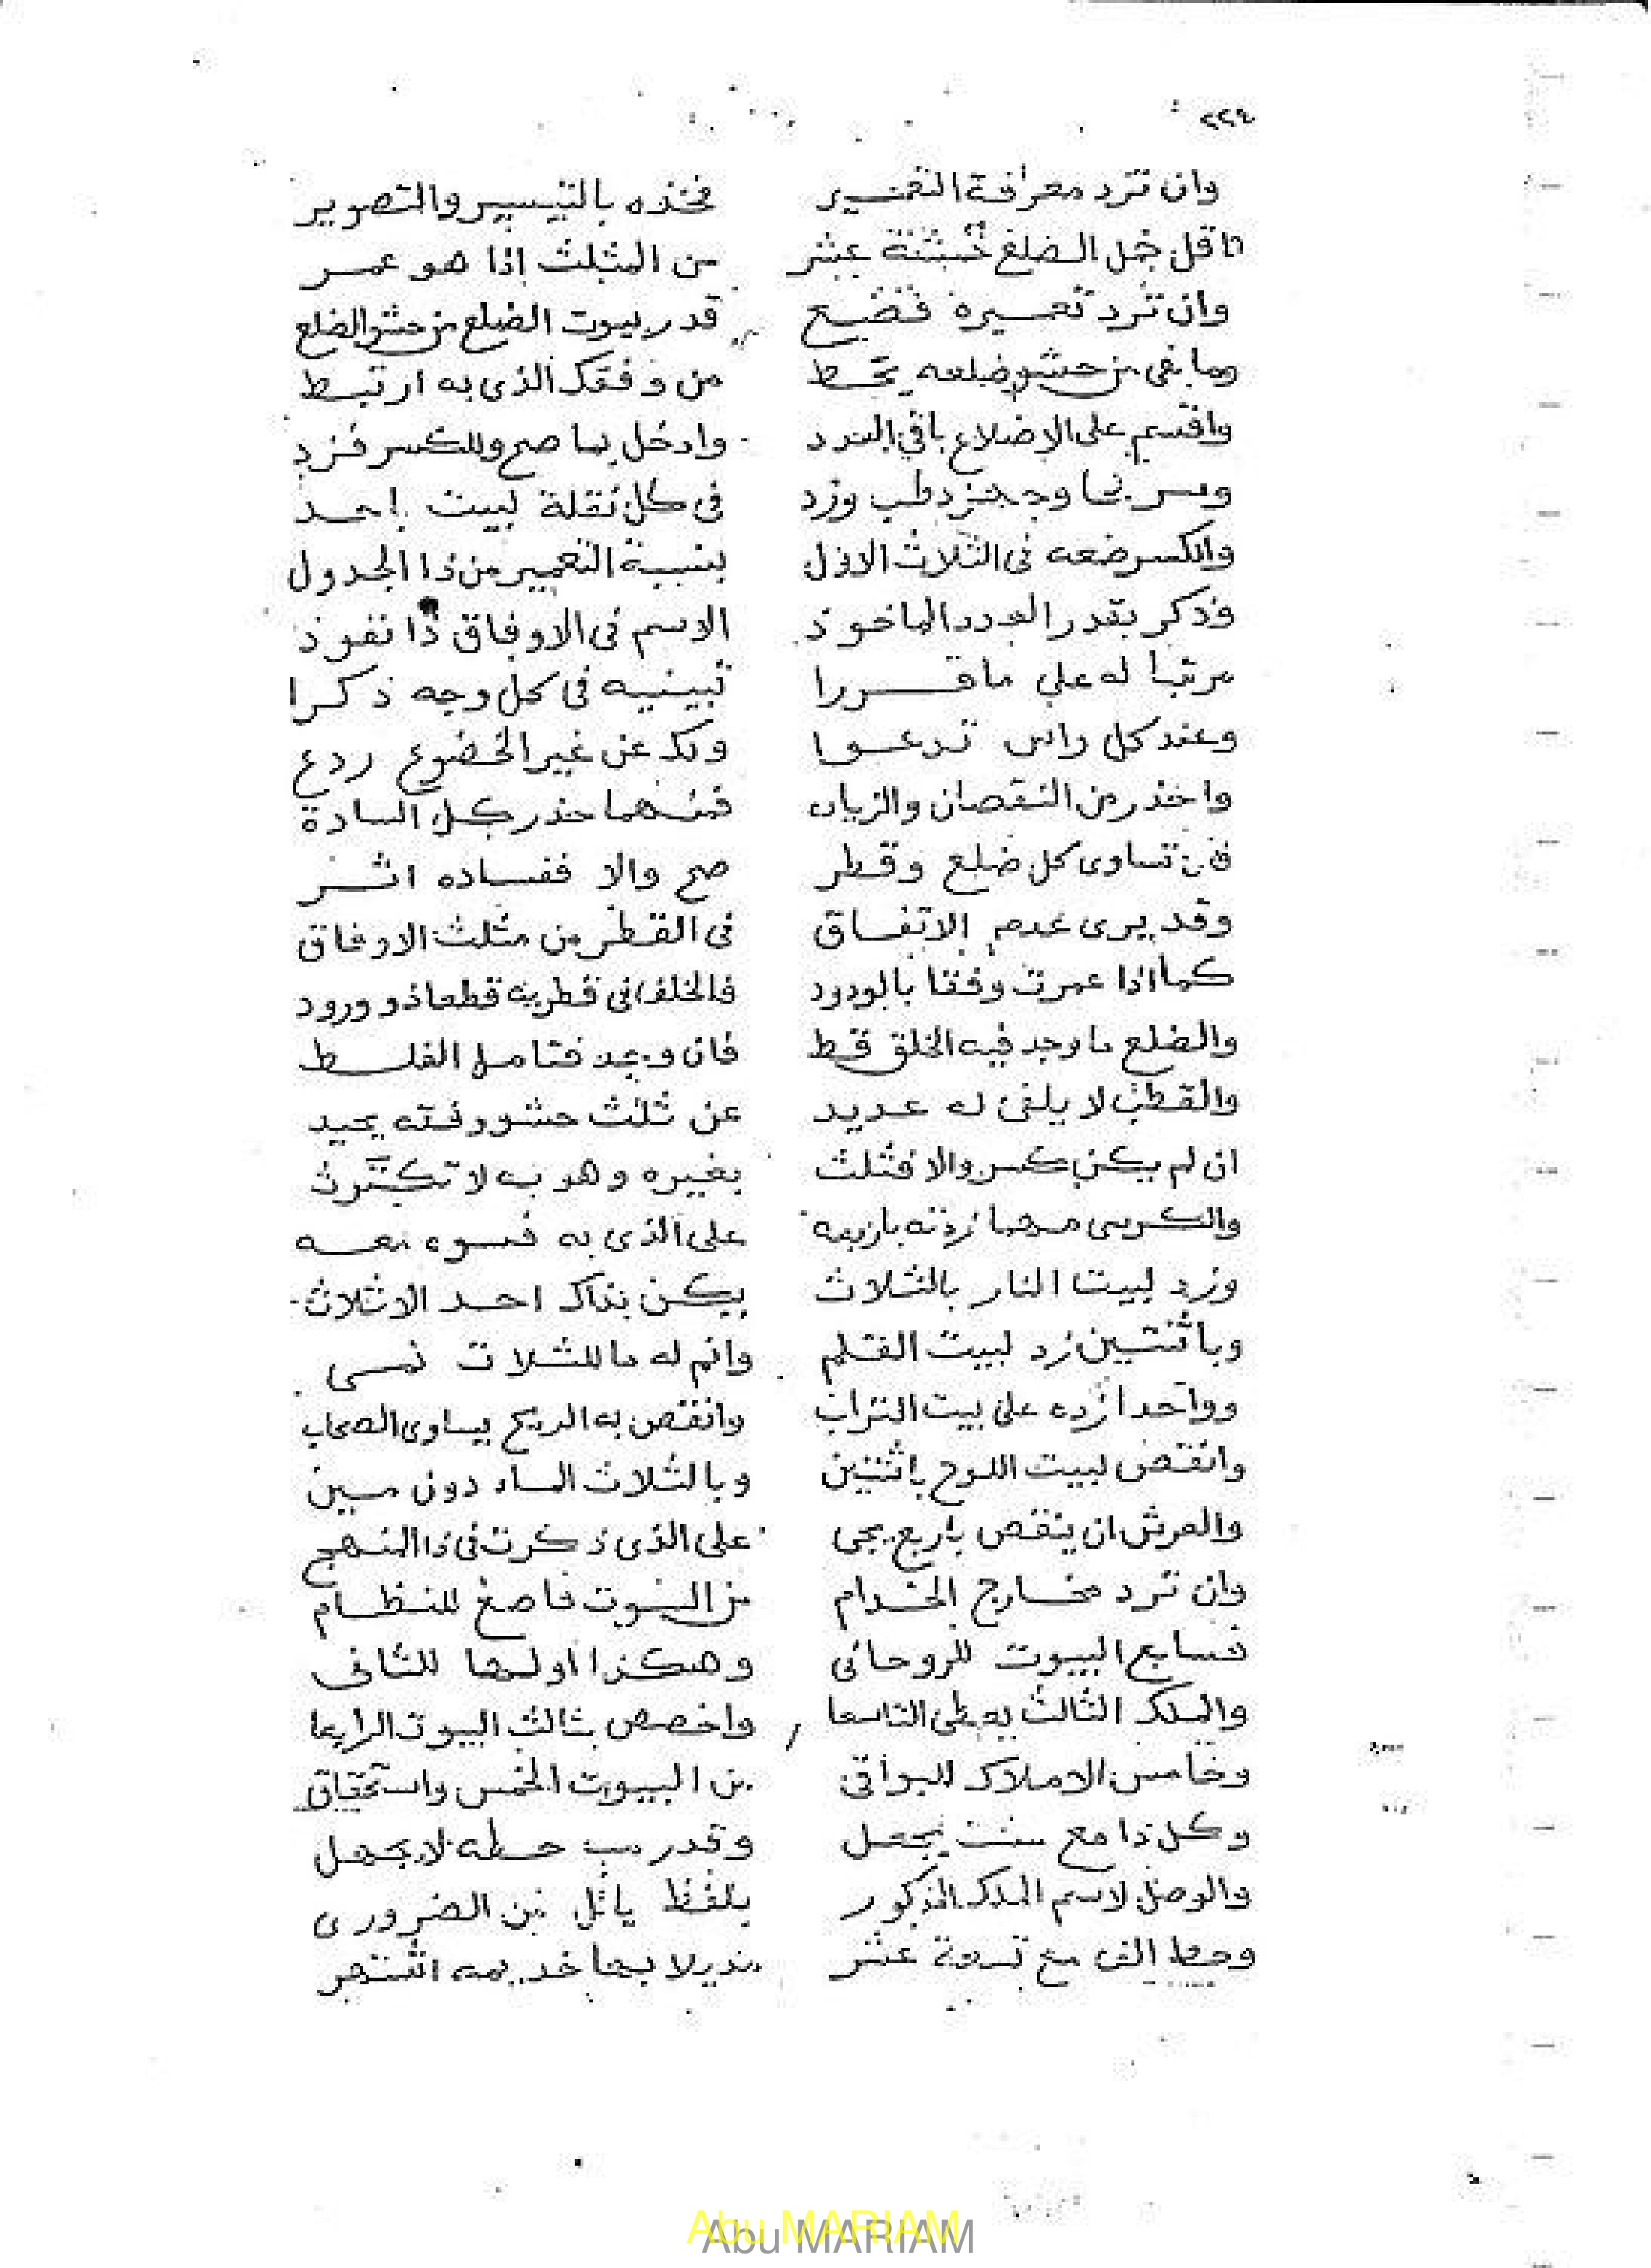 ٢٢٤
وان ترد معرفة التعمير فخذه بالتيسير والتصوير
اقل جل الضلع خمسة عشر من المثلث إذا هو عمر
وان ترد تعميره فضع قدر بيوت الضلع من حشو الضلع
وما بقى من حشو ضلعه يحط من وفقك الذى به ارتبط
واقسم على الاضلاع باقى العدد وادخل بما صح وللكسر فزد
وسر وزد فى كل نقلة لبيت احد
والكسر ضعه فى الثلاث الاول بنسبة التعمير من ذا الجدول
وذكر بقدر العدد الماخوذ الاسم فى الاوفاق ذا نفوذ
مرتبا له على ما قررا تبيينه فى كل وجه ذكرا
وعند كل راس تدعوا وكد عن غير الخضوع ردع
واحذر من النقصان والزياده فمنهما حذر كل السادة
فان تساوى كل ضلع وقطر صح والا ففساده اشر
وقد يرى عدم الاتفاق فى القطر من مثلث الاوفاق
كما اذا عمرت وفقا بالودود فالخلف فى قطريه قطعا ذو ورود
والضلع ما وجد فيه الخلق قط فان وجد فتامل الغلط
والقطب لا يلفى له عديد عن ثلث حشو وفقه يحيد
ان لم يكن كسر والا فثلث بغيره وهو به لا تكترث
والكرسى مهما زدته باربعه على الذى به فسوه معه
وزد لبيت النار بالثلاث يكن بذاك احد الاثلاث
وباثنتين زد لبيت القلم وانم له ما للثلاث نمى
وواحدا زده على بيت التراب وانقص به الريح يساوى الصحاب
وانقص لبيت اللوح باثنتين وبالثلاث الماء دون مين
والعرش ان ينقص باربع يجى على الذى ذكرت فى ذا المنهج
وان ترد مخارج الخدام من البيوت فاصغ للنظام
فسابع البيوت للروحانى وهكذا اولها للثانى
والملك الثالث يعطى التاسعا واخصص بثالث البيوت الرابعا
وخامس الاملاك للبواقى من البيوت الخمس واستحقاق
وكل ذا مع ست يجعل وقدر حطه لا يجهل
والوصل لاسم الملك المذكور بلفظ يائل من الضرورى
وحط الف مع تسعة عشر مذيلا بها خديمه اشتهر
Abu MARIAM